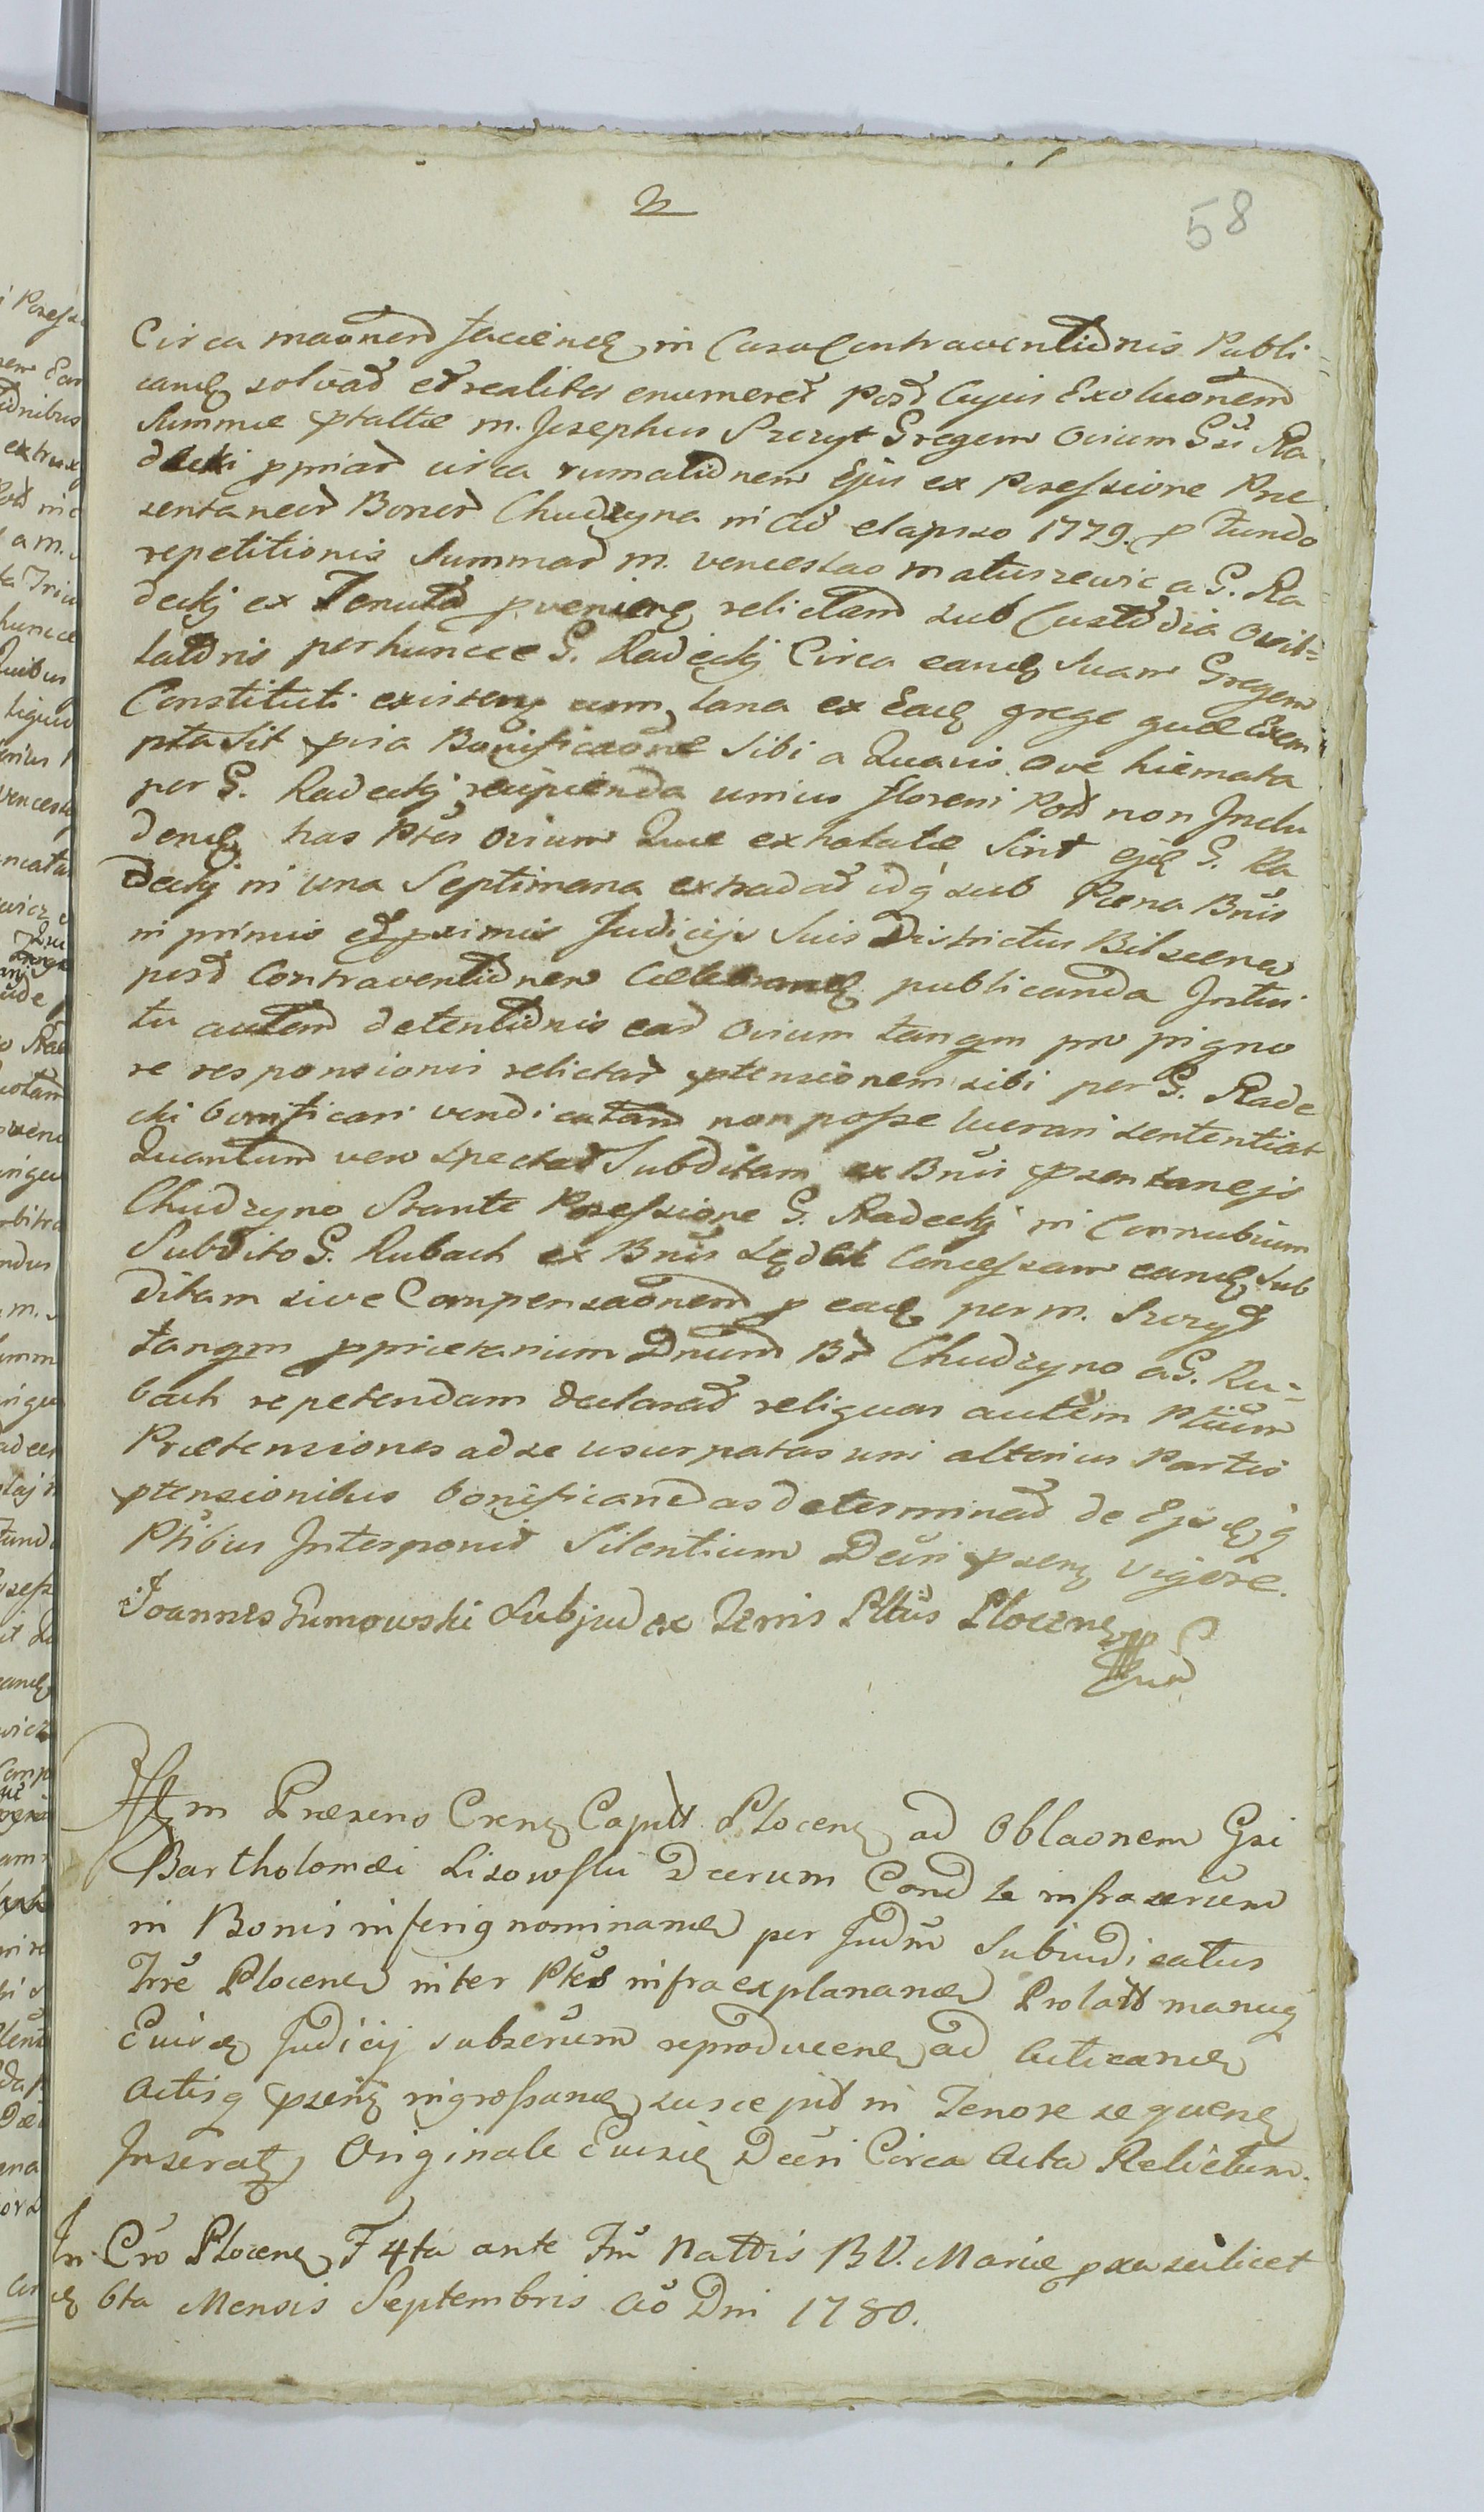 n
58
Circa maonem faciend in Casu Contraventionis Publi-
cand solvat et realiter enumeret post Cujus Exoluonem
Summe pttactæ m. Josephus Szczyt Gregem Ovium Gsi Ra
decki ppriar circa rumationem Ejus ex Possessione Præ
sentaneor Bonor Chudzyna in Ao elapso 1779. p fundo
repetitionis Summar m. Venceslao Maturzewic a G. Ra
decky ex Tenuta pvenien relictam sub Custodia Ovil=
latoris per huncce G. Radecky Circa eand Suam Gregem
Constituti existen cum lana ex Ead grege quæ Exem
pta sit pvia Bonificaone sibi a Quavis Ove hiemata
per G. Radecky recipienda unius floreni Pol non Inclu
dend has Ptes Ovium Quæ exhalatæ sint ejd G. Ra
decky in una Septimana extradat idq sub Pæna Bnis
in primis et pximis Judicijs Suis Districtus Bilscenen
post Contraventionem Celebrand publicanda Intui
tu autem detentionis ear Ovium tanqm pro pigno
re responsionis relictar ptensionem sibi per G. Rade
cki bonificari vendicatam non posse lucrari sententiat
Quantum vero spectat Subditam ex Bnis psentanejs
Chudzyno Stante Possessione G. Radecky in Connubium
Subdito G. Rubach ex Bnis Lędek Concessam eand Sub
ditam sive Compensaonem p ead per m. Szczyt
tanqm pprietarium Dnum Br Chudzyno a G. Ru=
bach repetendam declarat reliquas autem Ptium
Prætensiones ad se usurpatas uni alterius Partis
ptensionibus bonificandas determinat de Ejsdq
Ptibus Interponit Silentium Decri psen vigore.
Joannes Zumowski Subjudex Terris Pltus Plocen
Itm Præsens Cxens Capitt Plocen ad Oblaonem Gsi
Bartholomæi Lisowski Decrum Cond ta infrascrum
in Bonis inferiq nominand per Judm Subiudicatus
Trre Plocenen inter Ptes infra explanand Prolatt manuq
Eiusd Judicij subscrum reproducend ad Acticand
Actisq psen ingrossand suscepit in Tenore sequend
Inserat Originale Eiusd Decri Circa Acta Relictum.
In Cro Plocen F 4ta ante Fm Nattis B V. Mariæ pxa scilicet
d 6ta Mensis Septembris Ao Dni 1780.